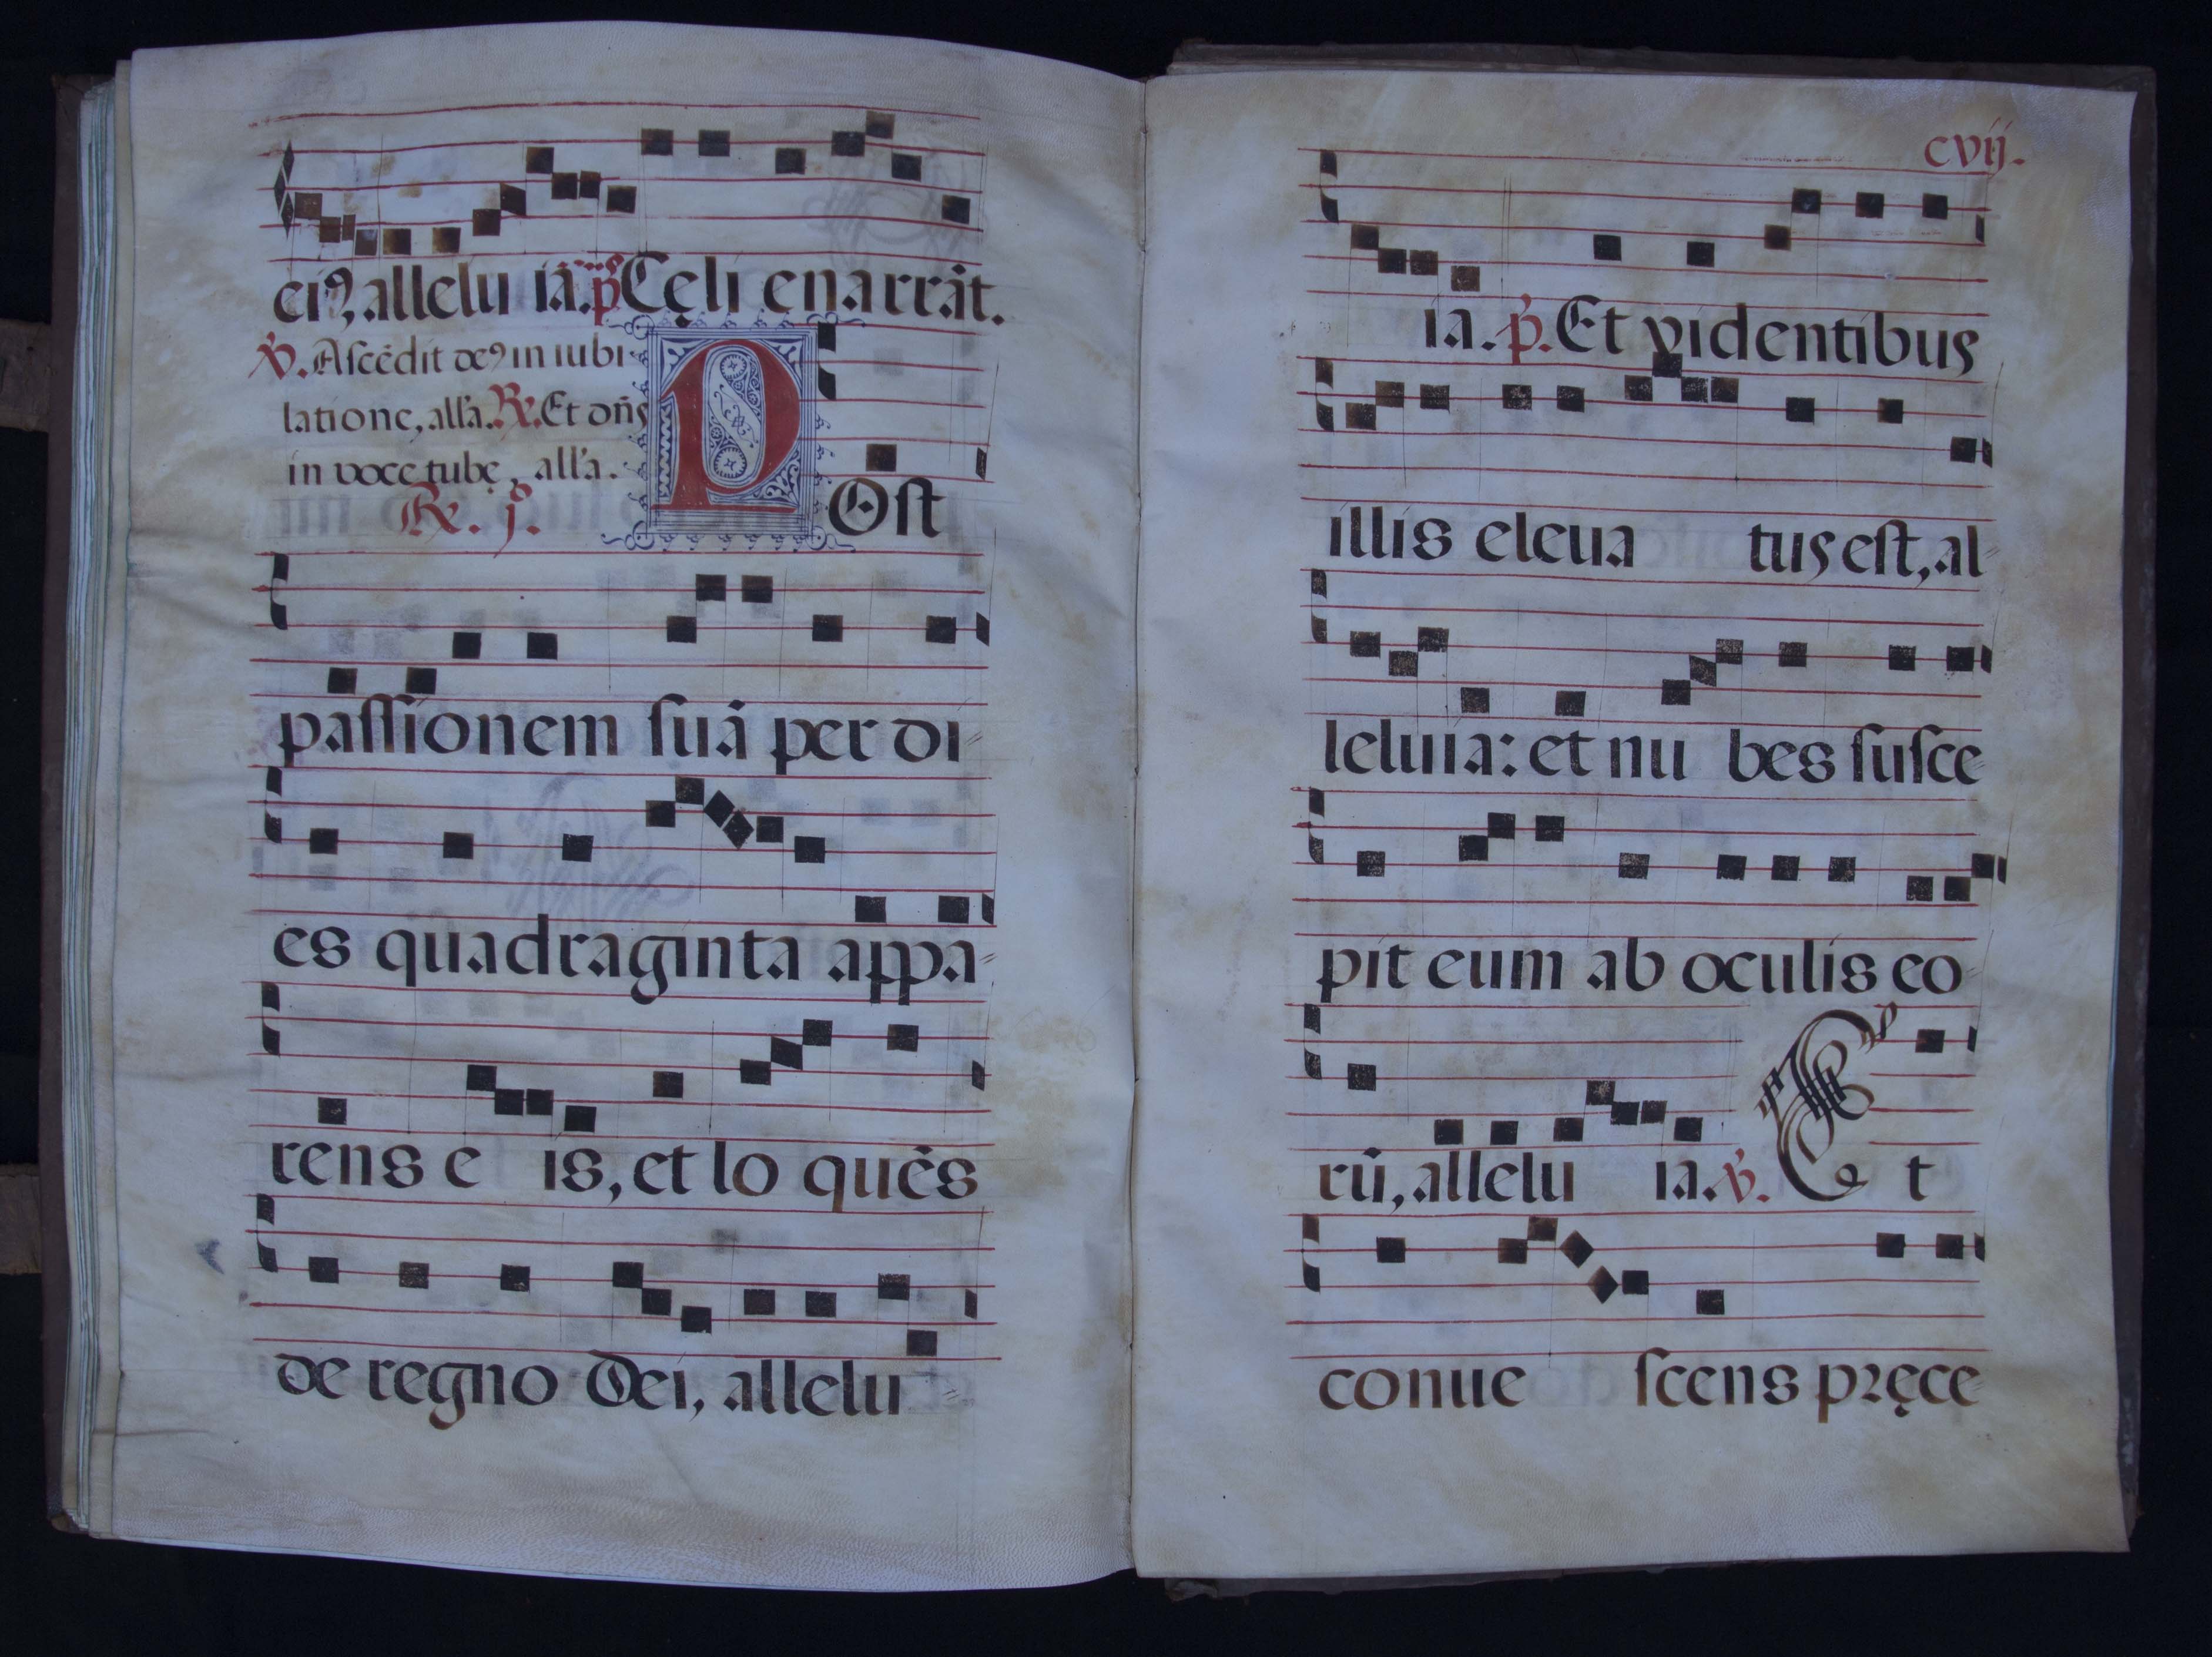 eiꝰ, allelu ia. p̃s Cęli enarrāt.
℣. Aſcēdit deꝰ in iubi
latione, all'a. ℟. Et dn̄s
in voce tubę, all'a.
℟. j.
POſt
paſſionem ſuā per di⸗
es quadraginta appa⸗
rens e is, et lo quēs
de regno Dei, allelu⸗
cvij.
ia. p̃. Et videntibus
illis eleua tus eſt, al⸗
leluia: et nu bes ſuſce⸗
pit eum ab oculis eo⸗
rū, allelu ia. ℣. Et
conue ſcens pręce⸗